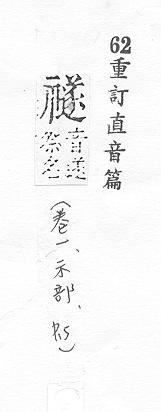 62重訂直音篇
禭 音遂
祭名
(卷一、示部、)